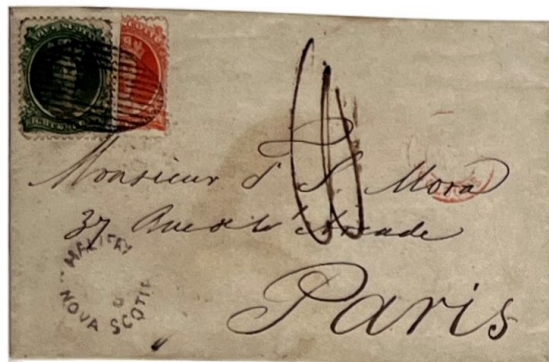 Monsieur J. S. Mora
37 Rue de l'Arcade
Paris
HALIFAX
NOVA SCOTIA